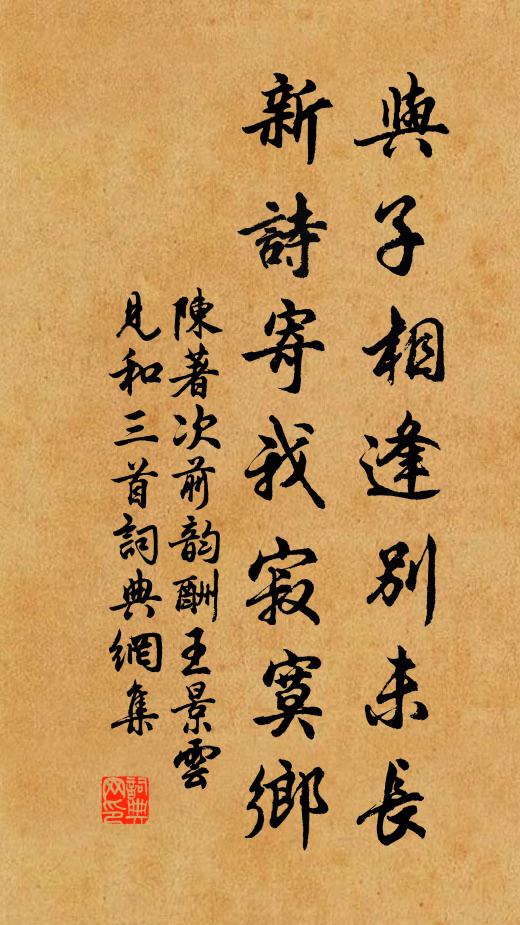 與子相逢別未長
新詩寄我寂寞鄉
陳著次前韵酬王景雲
見和三首詞典網集
詞典網印